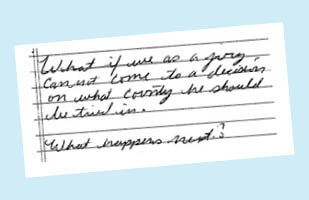 What if we as a jury
Can not come to a decision
on what county he should
be tried in.
What happens next?